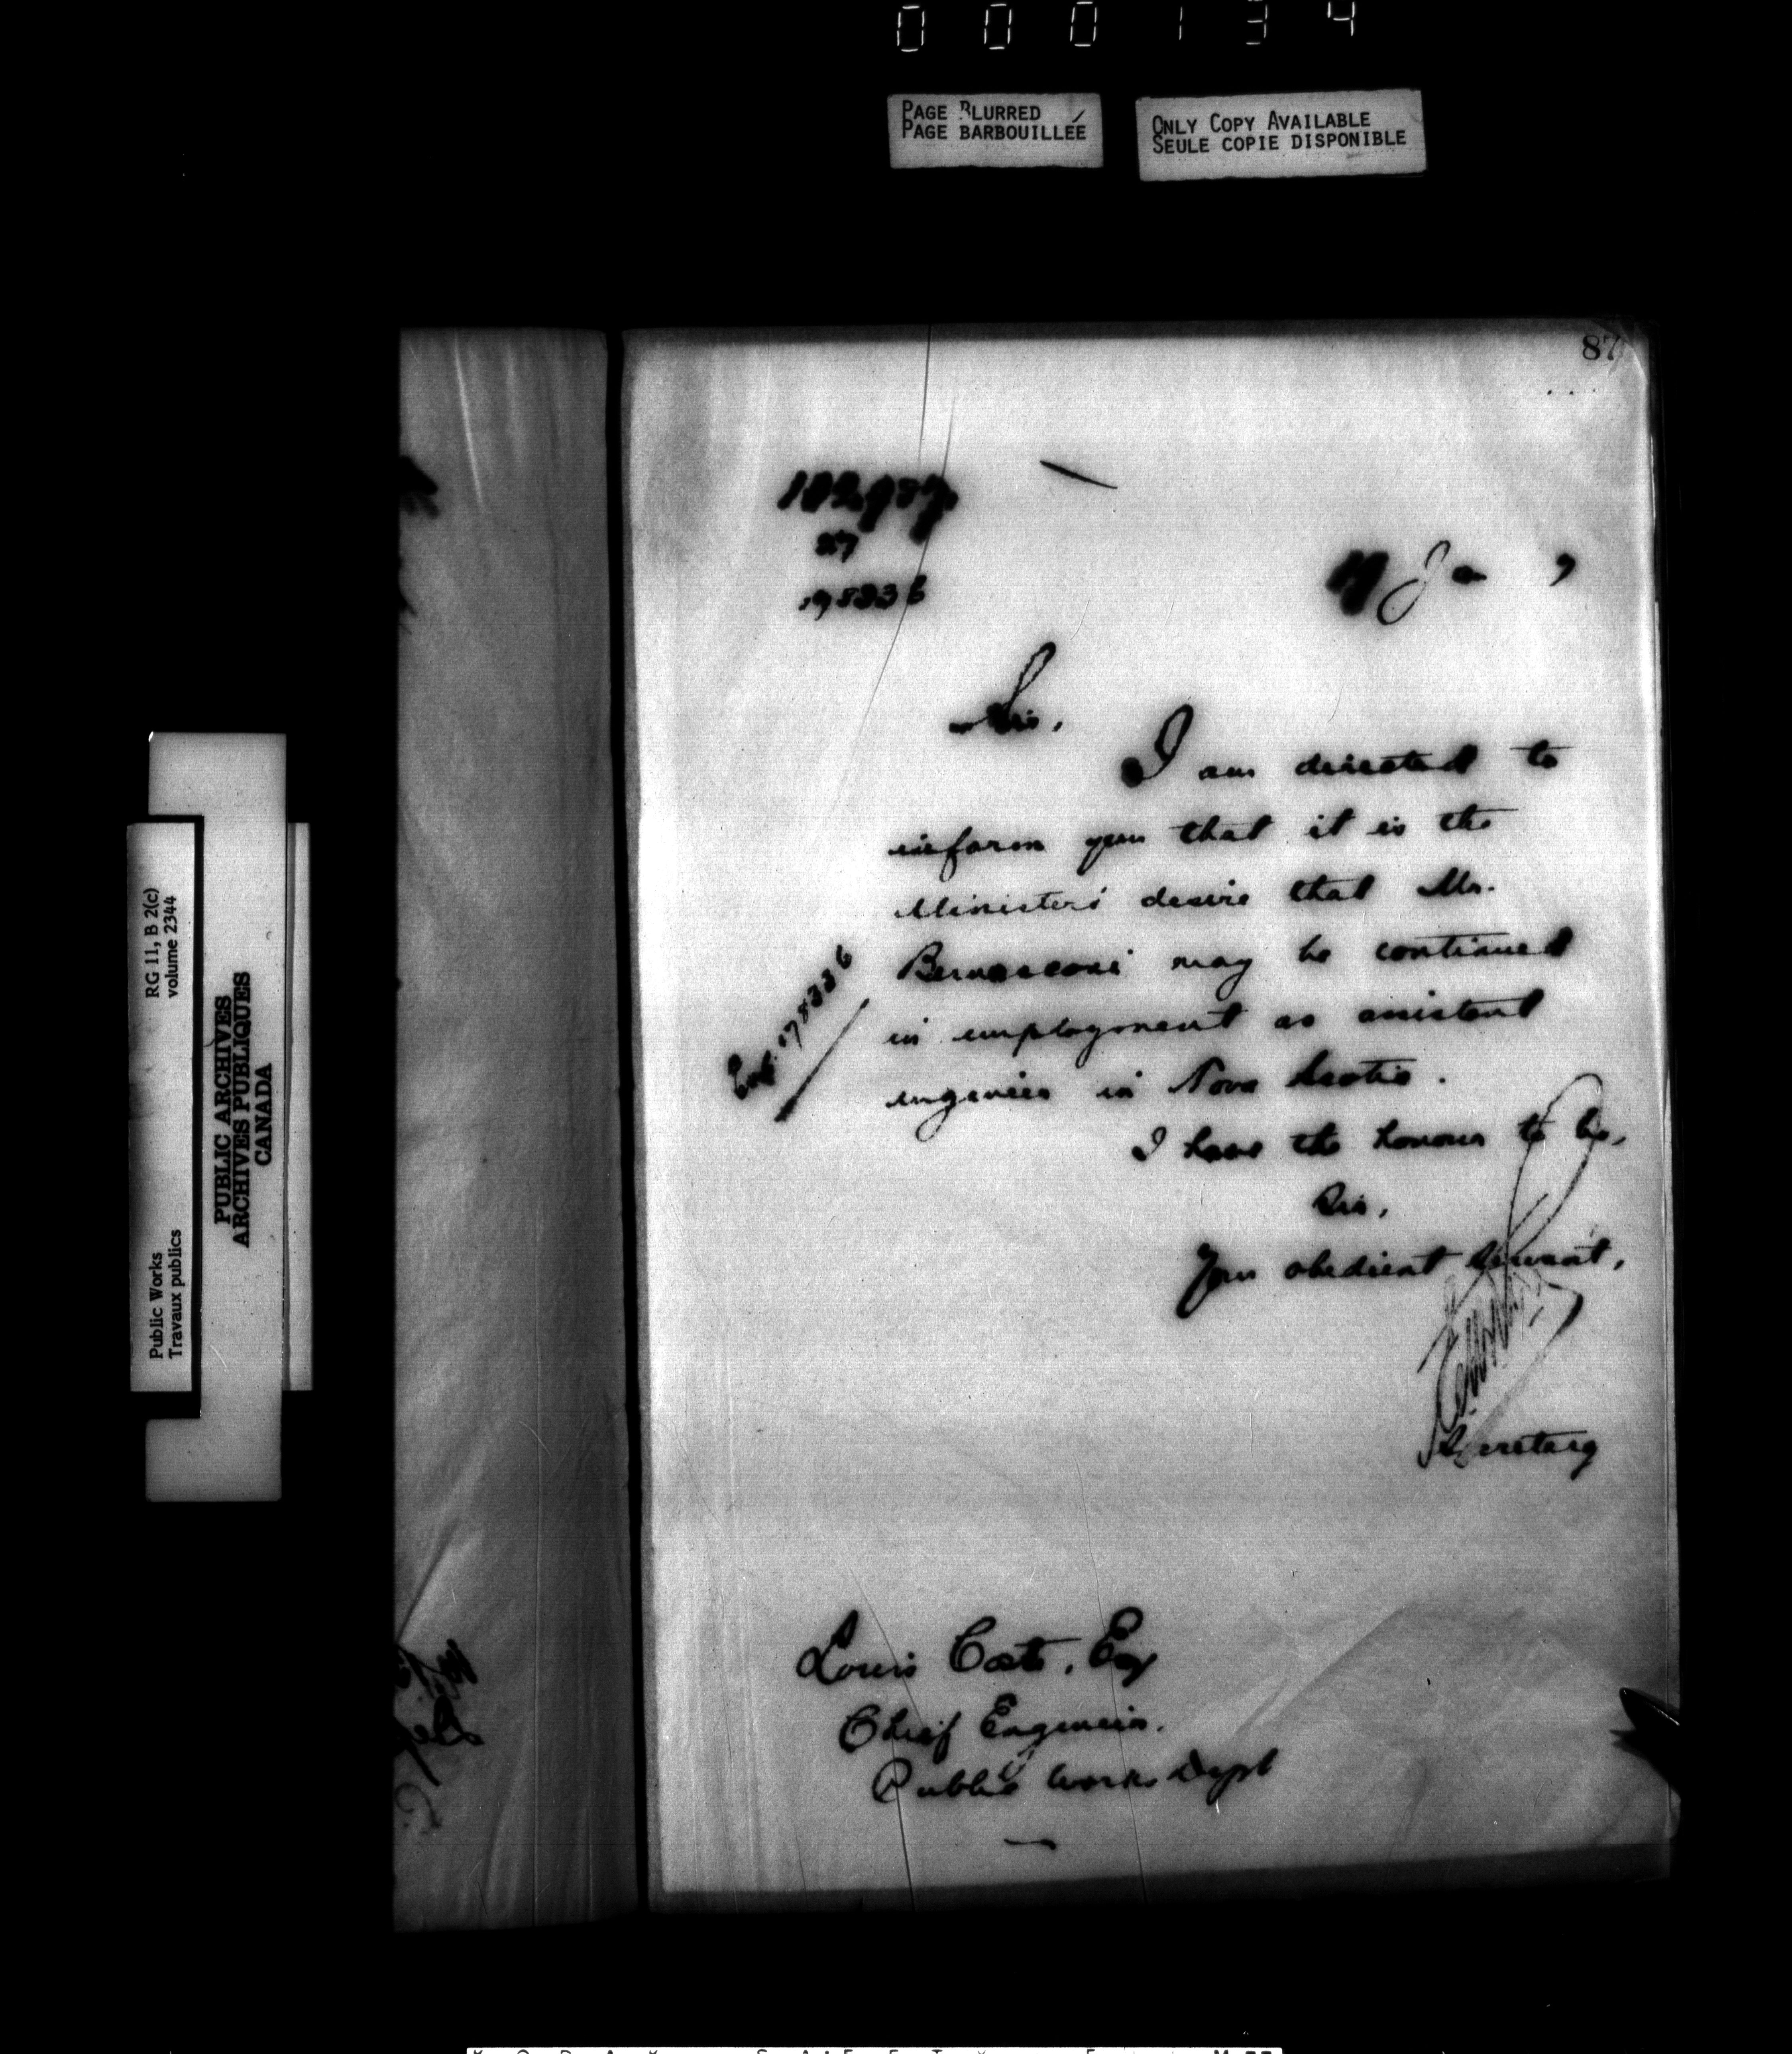 000134
PAGE BLURRED
PAGE BARBOUILLÉE
ONLY COPY AVAILABLE
SEULE COPIE DISPONIBLE
87
27
Jan 7
Sir,
I am directed to
inform you that it is the
Ministers' desire that Mr.
Bernasconi may be continued
in employment as assistant
engineer in Nova Scotia.
I have the honour to be,
Sir,
Your obedient servant,
Secretary
178336
Louis Coste, Esq
Chief Engineer.
Public Works Dept
RG 11, B 2(c)
volume 2344
Public Works
Travaux publics
PUBLIC ARCHIVES
ARCHIVES PUBLIQUES
CANADA